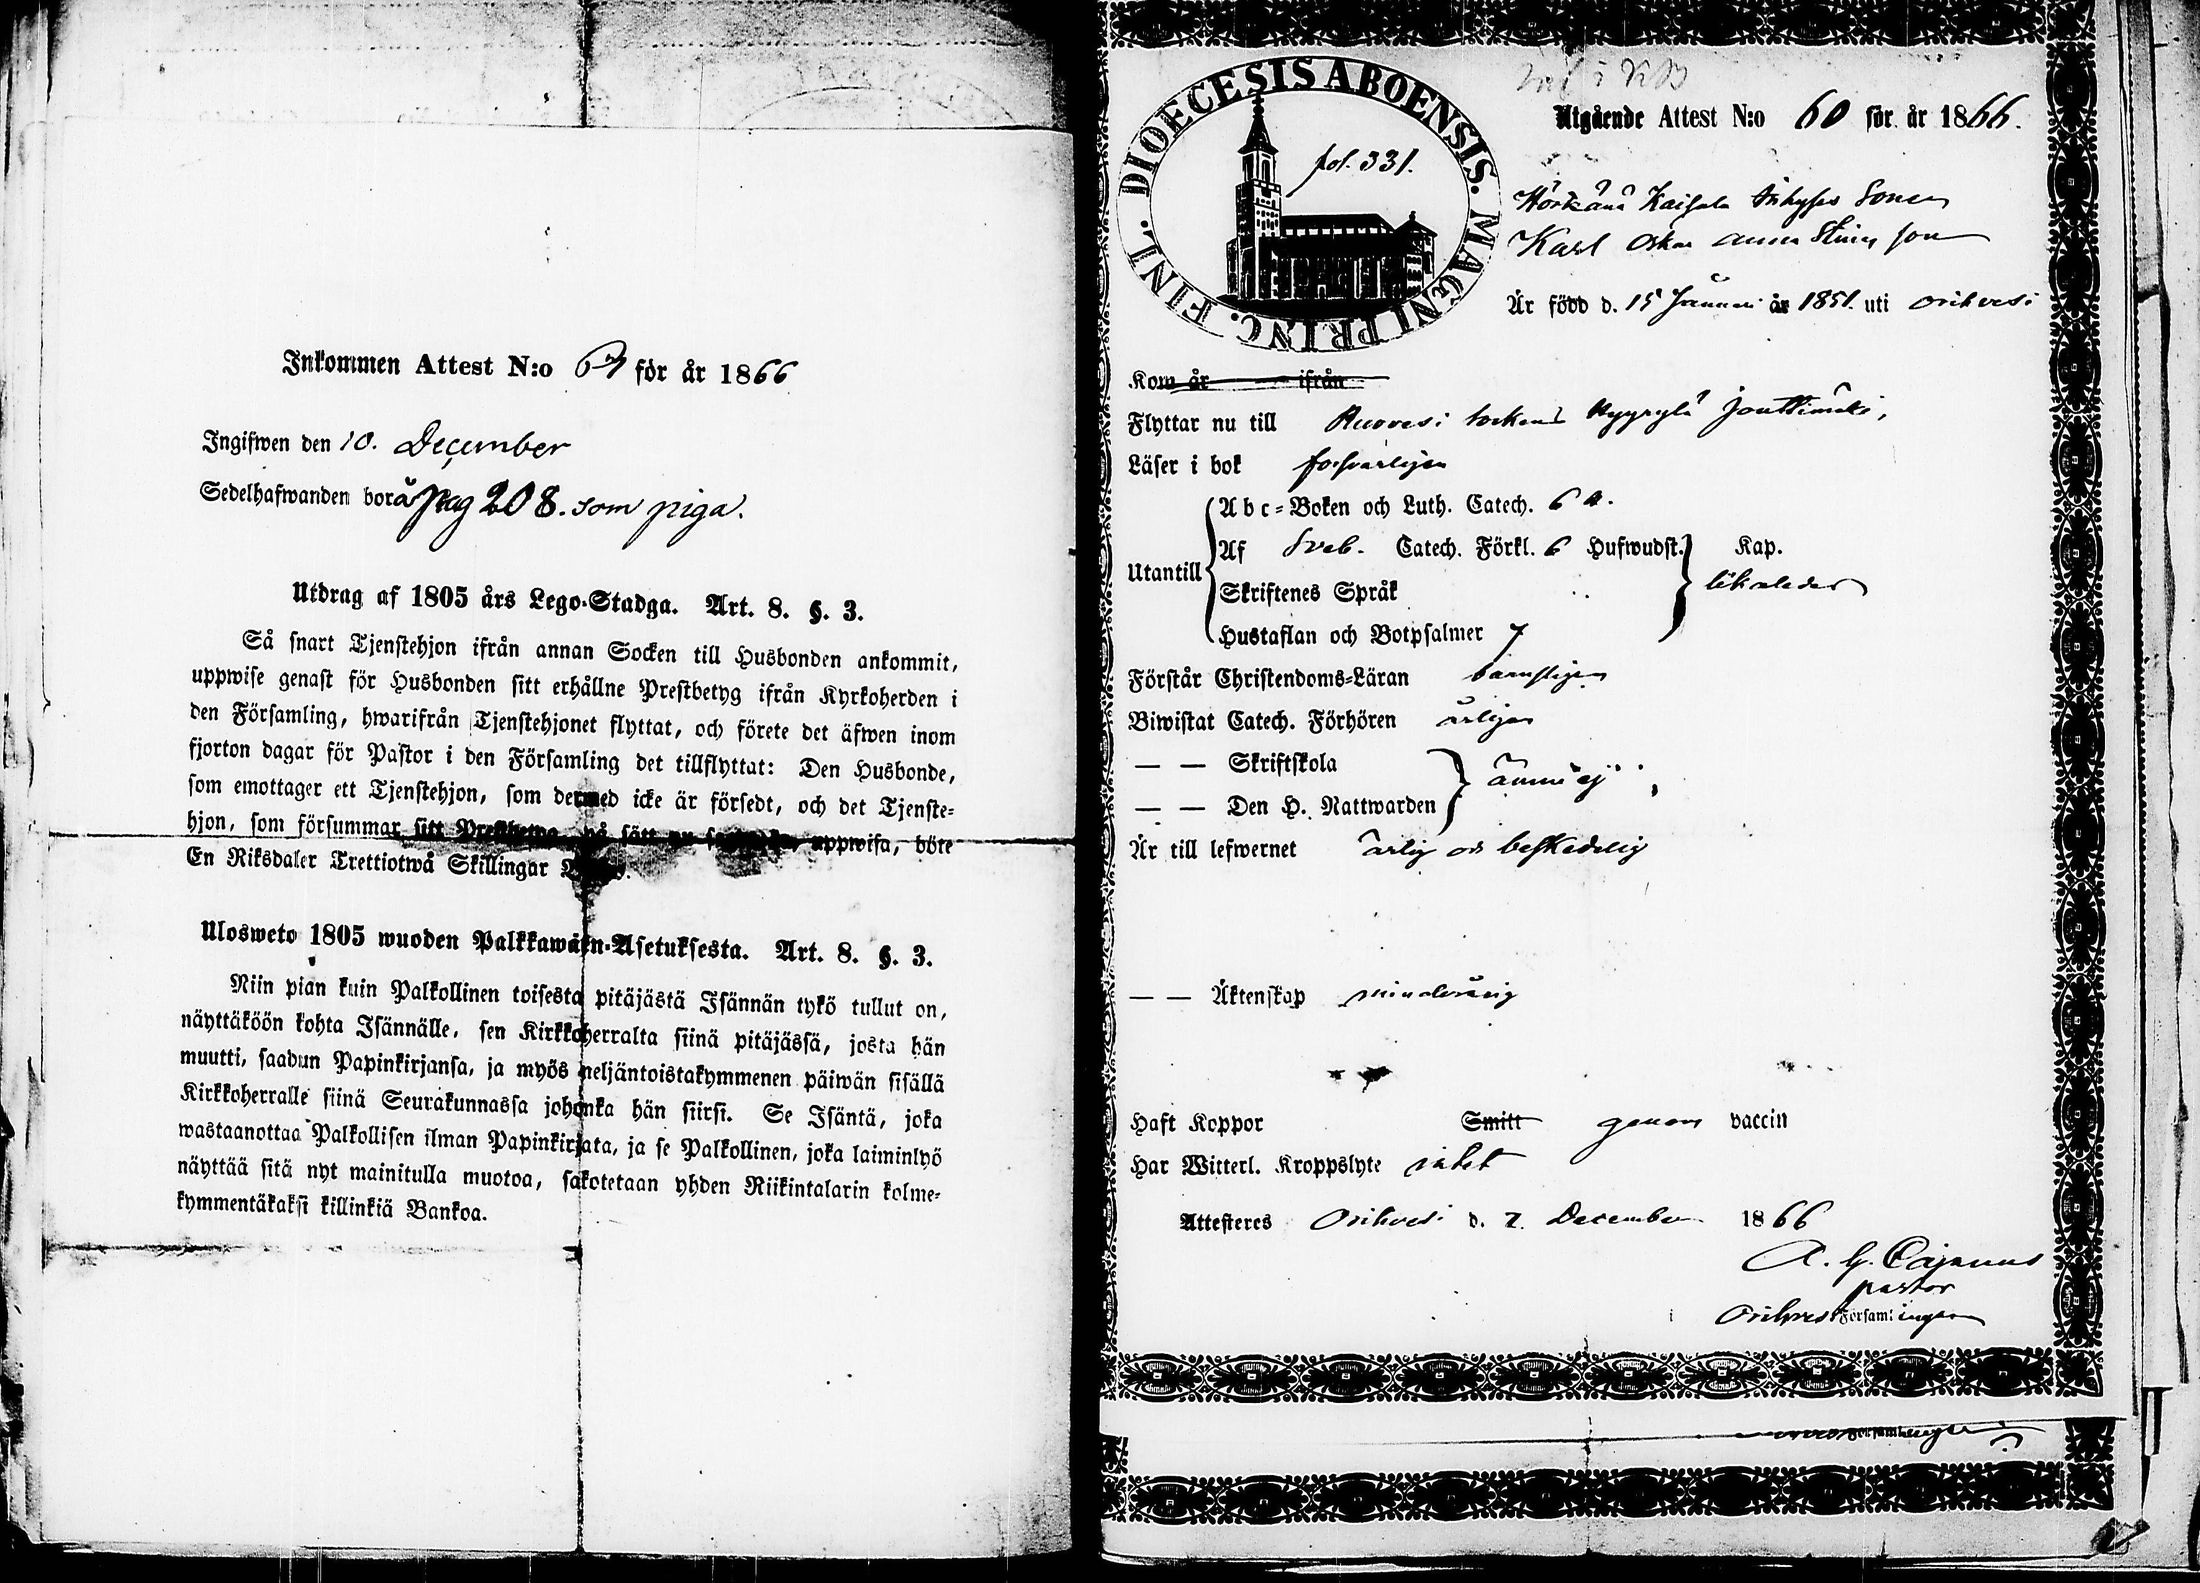 Inkommen Attest N:o 67 för år 1866
Ingifwen den 10. December
Sedelhafwanden bor å pag 208. som piga.
Utdrag af 1805 års Lego-Stadga. Art. 8. §. 3.
Så snart Tjenstehjon ifrån annan Socken till Husbonden ankommit,
uppwise genast för Husbonden sitt erhållne Prestbetyg ifrån Kyrkoherden i
den Församling, hwarifrån Tjenstehjonet flyttat, och förete det äfwen inom
fjorton dagar för Pastor i den Församling det tillflyttat: Den Husbonde,
som emottager ett Tjenstehjon, som dermed icke är försedt, och det Tjenste-
hjon, som försummar sitt Prestbetyg på sätt nu uppwisa, böte
En Riksdaler Trettiotwå Skillingar
Ulosweto 1805 wuoden Palkkawäen-Asetuksesta. Art. 8. §. 3.
Niin pian kuin Palkollinen toisesta pitäjästä Isännän tykö tullut on,
näyttäköön kohta Isännälle, sen Kirkkoherralta siinä pitäjässä, josta hän
muutti, saadun Papinkirjansa, ja myös neljäntoistakymmenen päiwän sisällä
Kirkkoherralle siinä Seurakunnassa johonka hän siirsi. Se Isäntä, joka
wastaanottaa Palkollisen ilman Papinkirjata, ja se Palkollinen, joka laiminlyö
näyttää sitä nyt mainitulla muotoa, sakotetaan yhden Riikintalarin kolme-
kymmentäkaksi killinkiä Bankoa.
DIOECESIS ABOENSIS. MAGNI PRINC. FINL.
fol. 331.
Utgående Attest N:o 60 för år 1866.
Sonen
Karl Oskar Anna Stinas son
Är född d. 15 Januari år 1851. uti Orihvesi
Kom år ifrån
Flyttar nu till Ruovesi sockens
Läser i bok försvarligen
Utantill
Abc-Boken och Luth. Catech. 6 a.
Af Sveb. Catech. Förkl. 6 Hufwudst. Kap.
Skriftenes Språk
likaledes
Hustaflan och Botpsalmer 7
Förstår Christendoms-Läran barnsligen
Biwistat Catech. Förhören årligen
— — Skriftskola
ännu ej
— — Den H. Nattwarden
Är till lefwernet ärlig och beskedelig
— — Äktenskap minderårig
Haft Koppor Smitt genom vaccin
Har Witterl. Kroppslyte intet
Attesteres Orihvesi d. 7. December 1866
A. G. Cajanus
pastor
i Orihvesi Församlingen